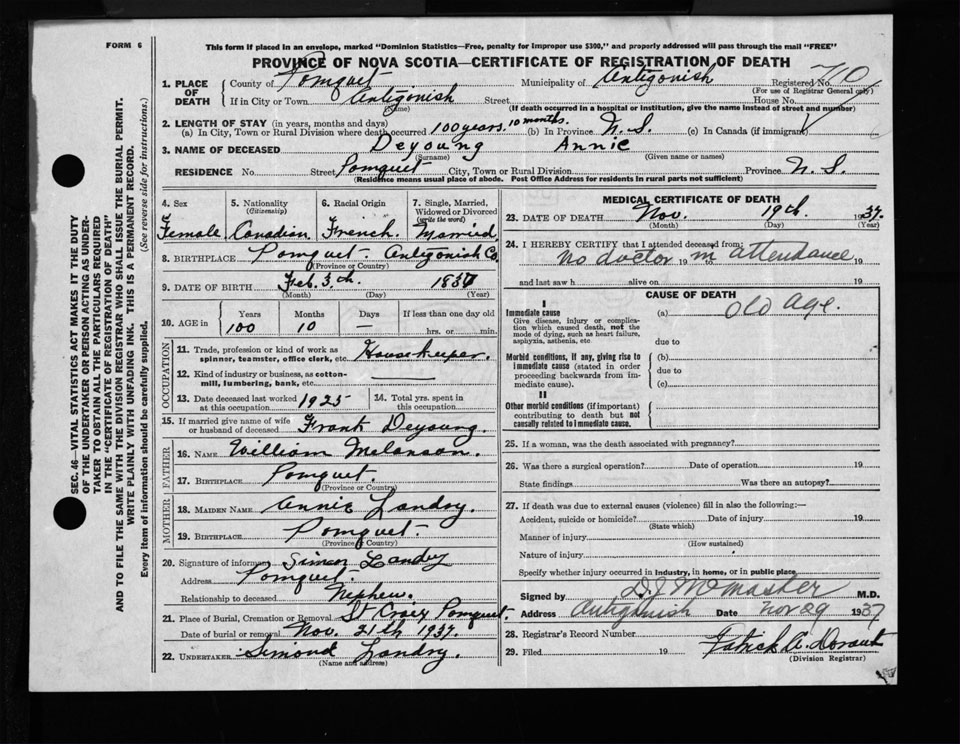 FORM 6
This form if placed in an envelope, marked "Dominion Statistics—Free, penalty for improper use $300," and properly addressed will pass through the mail "FREE"
PROVINCE OF NOVA SCOTIA—CERTIFICATE OF REGISTRATION OF DEATH
1. PLACE OF DEATH
County of Pomquet Municipality of Antigonish Registered No. 710
(For use of Registrar General only)
If in City or Town Antigonish Street House No.
(Name) (If death occurred in a hospital or institution, give the name instead of street and number)
2. LENGTH OF STAY (in years, months and days)
(a) In City, Town or Rural Division where death occurred 100 years. 10 months. (b) In Province N. S. (c) In Canada (if immigrant)
3. NAME OF DECEASED Deyoung Annie
(Surname) (Given name or names)
RESIDENCE No. Street Pomquet City, Town or Rural Division Province N. S.
(Residence means usual place of abode. Post Office Address for residents in rural parts not sufficient)
4. Sex 5. Nationality (Citizenship) 6. Racial Origin 7. Single, Married, Widowed or Divorced (write the word)
Female Canadian French. Married.
8. BIRTHPLACE Pomquet. Antigonish Co.
(Province or Country)
9. DATE OF BIRTH Feb. 3.th. 1837
(Month) (Day) (Year)
10. AGE in Years Months Days If less than one day old
100 10 — hrs. or min.
OCCUPATION
11. Trade, profession or kind of work as spinner, teamster, office clerk, etc. Housekeeper.
12. Kind of industry or business, as cotton-mill, lumbering, bank, etc. —
13. Date deceased last worked at this occupation 1925 14. Total yrs. spent in this occupation
15. If married give name of wife or husband of deceased Frank Deyoung.
FATHER
16. NAME William Melanson.
17. BIRTHPLACE Pomquet.
(Province or Country)
MOTHER
18. MAIDEN NAME Annie Landry.
19. BIRTHPLACE Pomquet.
(Province or Country)
20. Signature of informant Simon Landry
Address Pomquet.
Relationship to deceased Nephew.
21. Place of Burial, Cremation or Removal St Croix Pomquet.
Date of burial or removal Nov. 21th 1937.
22. UNDERTAKER Simond Landry.
(Name and address)
MEDICAL CERTIFICATE OF DEATH
23. DATE OF DEATH Nov. 19th. 1937.
(Month) (Day) (Year)
24. I HEREBY CERTIFY that I attended deceased from:
No doctor 19 in attendance 19
and last saw h alive on 19
CAUSE OF DEATH
I
Immediate cause
Give disease, injury or complication which caused death, not the mode of dying, such as heart failure, asphyxia, asthenia, etc.
(a) Old Age.
due to
Morbid conditions, if any, giving rise to immediate cause (stated in order proceeding backwards from immediate cause).
(b)
due to
(c)
II
Other morbid conditions (if important) contributing to death but not causally related to immediate cause.
25. If a woman, was the death associated with pregnancy?
26. Was there a surgical operation? Date of operation 19
State findings Was there an autopsy?
27. If death was due to external causes (violence) fill in also the following:—
Accident, suicide or homicide? Date of injury 19
(State which)
Manner of injury
(How sustained)
Nature of injury
Specify whether injury occurred in industry, in home, or in public place
Signed by D J McMaster M.D.
Address Antigonish Date Nov 29 1937
28. Registrar's Record Number
29. Filed 19 Patrick A.
(Division Registrar)
SEC. 46—VITAL STATISTICS ACT MAKES IT THE DUTY
OF THE UNDERTAKER OR PERSON ACTING AS UNDER-
TAKER TO OBTAIN ALL THE PARTICULARS REQUIRED
IN THE "CERTIFICATE OF REGISTRATION OF DEATH"
AND TO FILE THE SAME WITH THE DIVISION REGISTRAR WHO SHALL ISSUE THE BURIAL PERMIT.
WRITE PLAINLY WITH UNFADING INK. THIS IS A PERMANENT RECORD.
Every item of information should be carefully supplied. (See reverse side for instructions.)